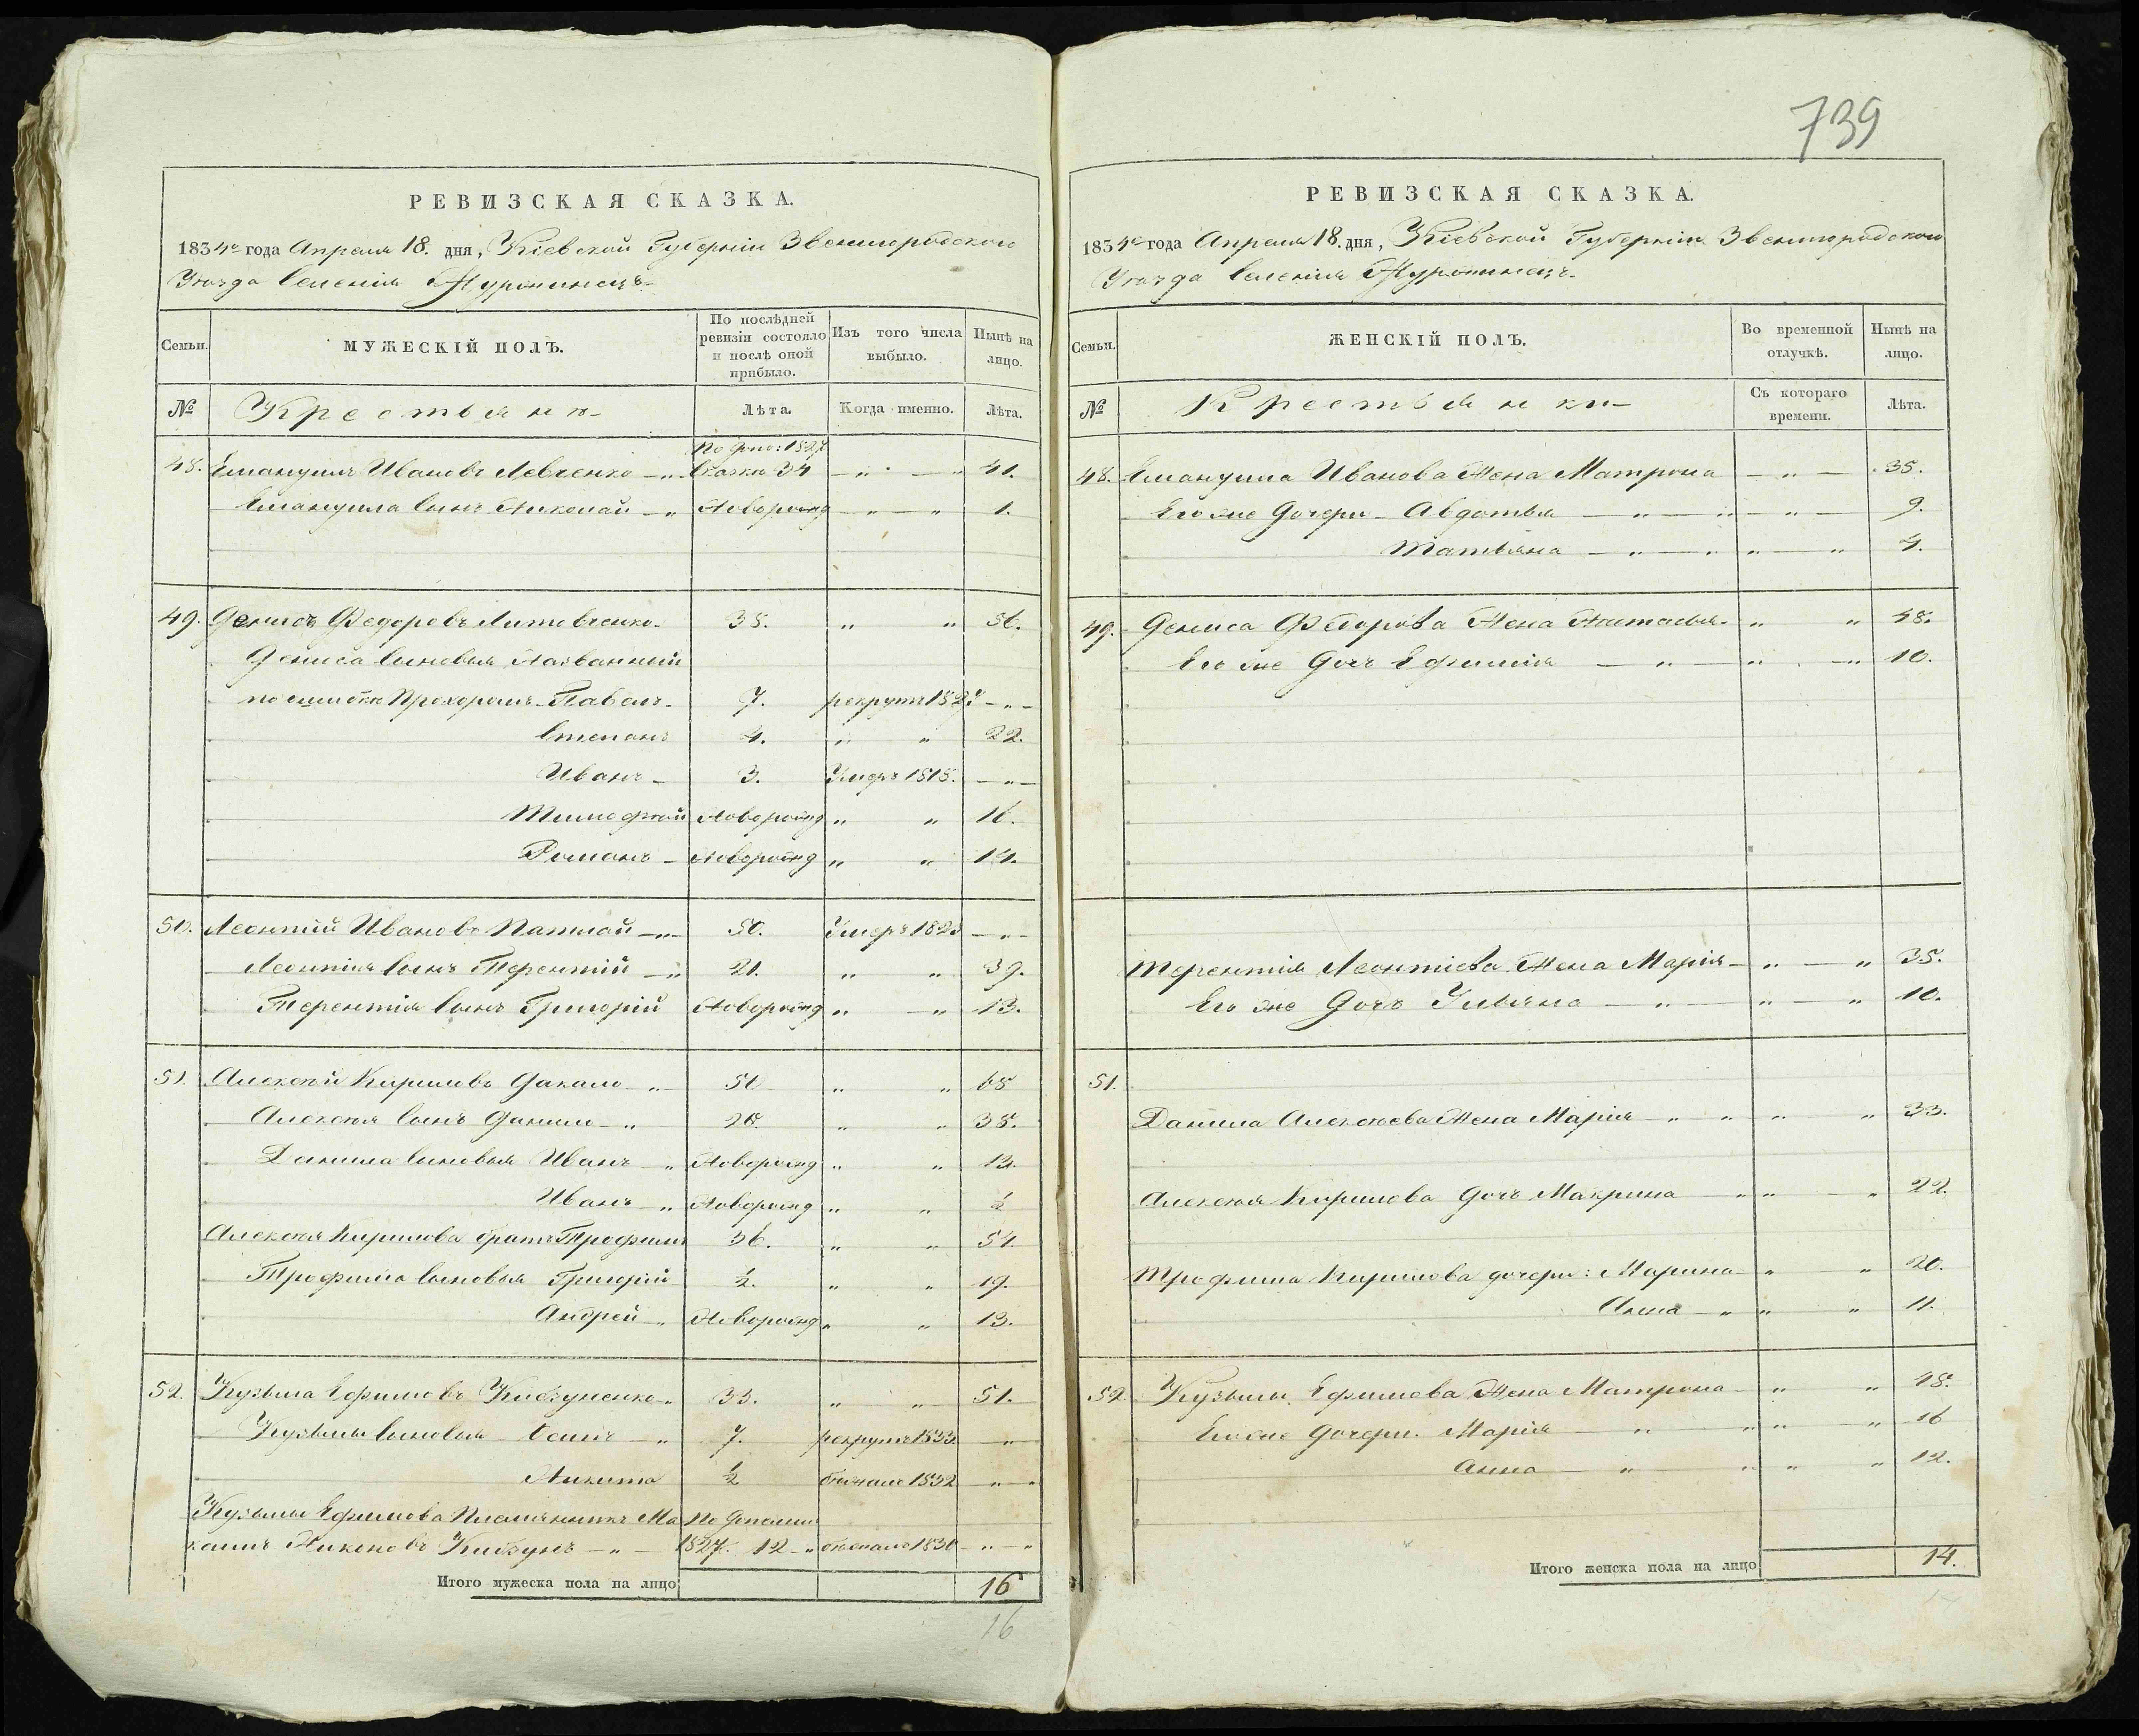 739
РЕВИЗСКАЯ СКАЗКА.
1834го года Апреля 18. дня, Кіевской Губерніи Звенигородского
Уезда Селенія Журжинецъ
Семьи. МУЖЕСКІЙ ПОЛЪ. По послѣдней ревизіи состояло и послѣ оной прибыло. Изъ того числа выбыло. Нынѣ на лицо.
№ Крестьяне Лѣта. Когда именно. Лѣта.
По допо: 1827
48. Емануилъ Ивановъ Левченко – „ – Сказке 34 – „ – „ 41.
Емануила Сынъ Николай – „ Новорожд – „ – „ 1.
49. Денисъ Федоровъ Литовченко 38. „ „ 56.
Дениса Сыновья Названный
по ошибке Прохоромъ Павелъ 7. рекрутъ 1827 – „ –
Степанъ 4. „ „ 22.
Иванъ – 3. Умеръ 1818. – „ –
Тимофей Новорожд „ „ 16.
Романъ – Новорожд „ „ 14.
50. Леонтій Ивановъ Патлай – „ – 50. Умеръ 1823 – „ –
Леонтія Сынъ Терентій – „ 21. „ „ 39.
Терентія Сынъ Григорій Новорожд „ – „ 13.
51. Алексей Кириловъ Дакало – „ 50 „ „ 68
Алексея Сынъ Данило – „ 20. „ „ 38.
Данила Сыновья Иванъ – „ Новорожд „ „ 13.
Иванъ – „ Новорожд „ „ ½
Алексея Кирилова братъ Трофимъ 36. „ „ 54.
Трофима Сыновья Григорій ½. „ „ 19.
Андрей – „ Новорожд „ „ 13.
52. Кузьма Ефимовъ Кибзуненко – „ 33. „ „ 51.
Кузьмы Сыновья Осипъ – „ 7. рекрутъ 1833. – „
Никита ½ бежалъ 1832 – „ –
Кузьмы Ефимова Племянникъ Ма По допол
1827. 12 – „ бежалъ 1830 – „ – „
Итого мужеска пола на лицо 16
16
РЕВИЗСКАЯ СКАЗКА.
1834го года Апреля 18. дня, Кіевской Губерніи Звенигородского
Уезда Селенія Журжинецъ
Семьи. ЖЕНСКІЙ ПОЛЪ. Во временной отлучкѣ. Нынѣ на лицо.
№ Крестьянки Съ котораго времени. Лѣта.
48. Емануила Иванова Жена Матрона – „ – 35.
Его же Дочери – Авдотья – „ – „ – „ – 9.
Татьяна – „ – „ „ – „ 4.
49. Дениса Федорова Жена Настасья – „ „ 48.
Его же Дочь Ефимія – „ – „ – „ 10.
Терентія Леонтіева Жена Марія – „ – „ 35.
Его же Дочь Ульяна – „ – „ – „ 10.
51.
Данила Алексеева Жена Марія – „ „ „ „ 33.
Алексея Кирилова Дочь Макрина – „ „ – „ 22.
Трофима Кирилова дочери: Марина – „ „ 20.
Анна – „ „ „ 11.
52. Кузьмы Ефимова Жена Матрона – „ „ 48.
Его же Дочери. Марія – „ „ „ – „ 16
Анна – „ „ „ „ 12.
Итого женска пола на лицо 14.